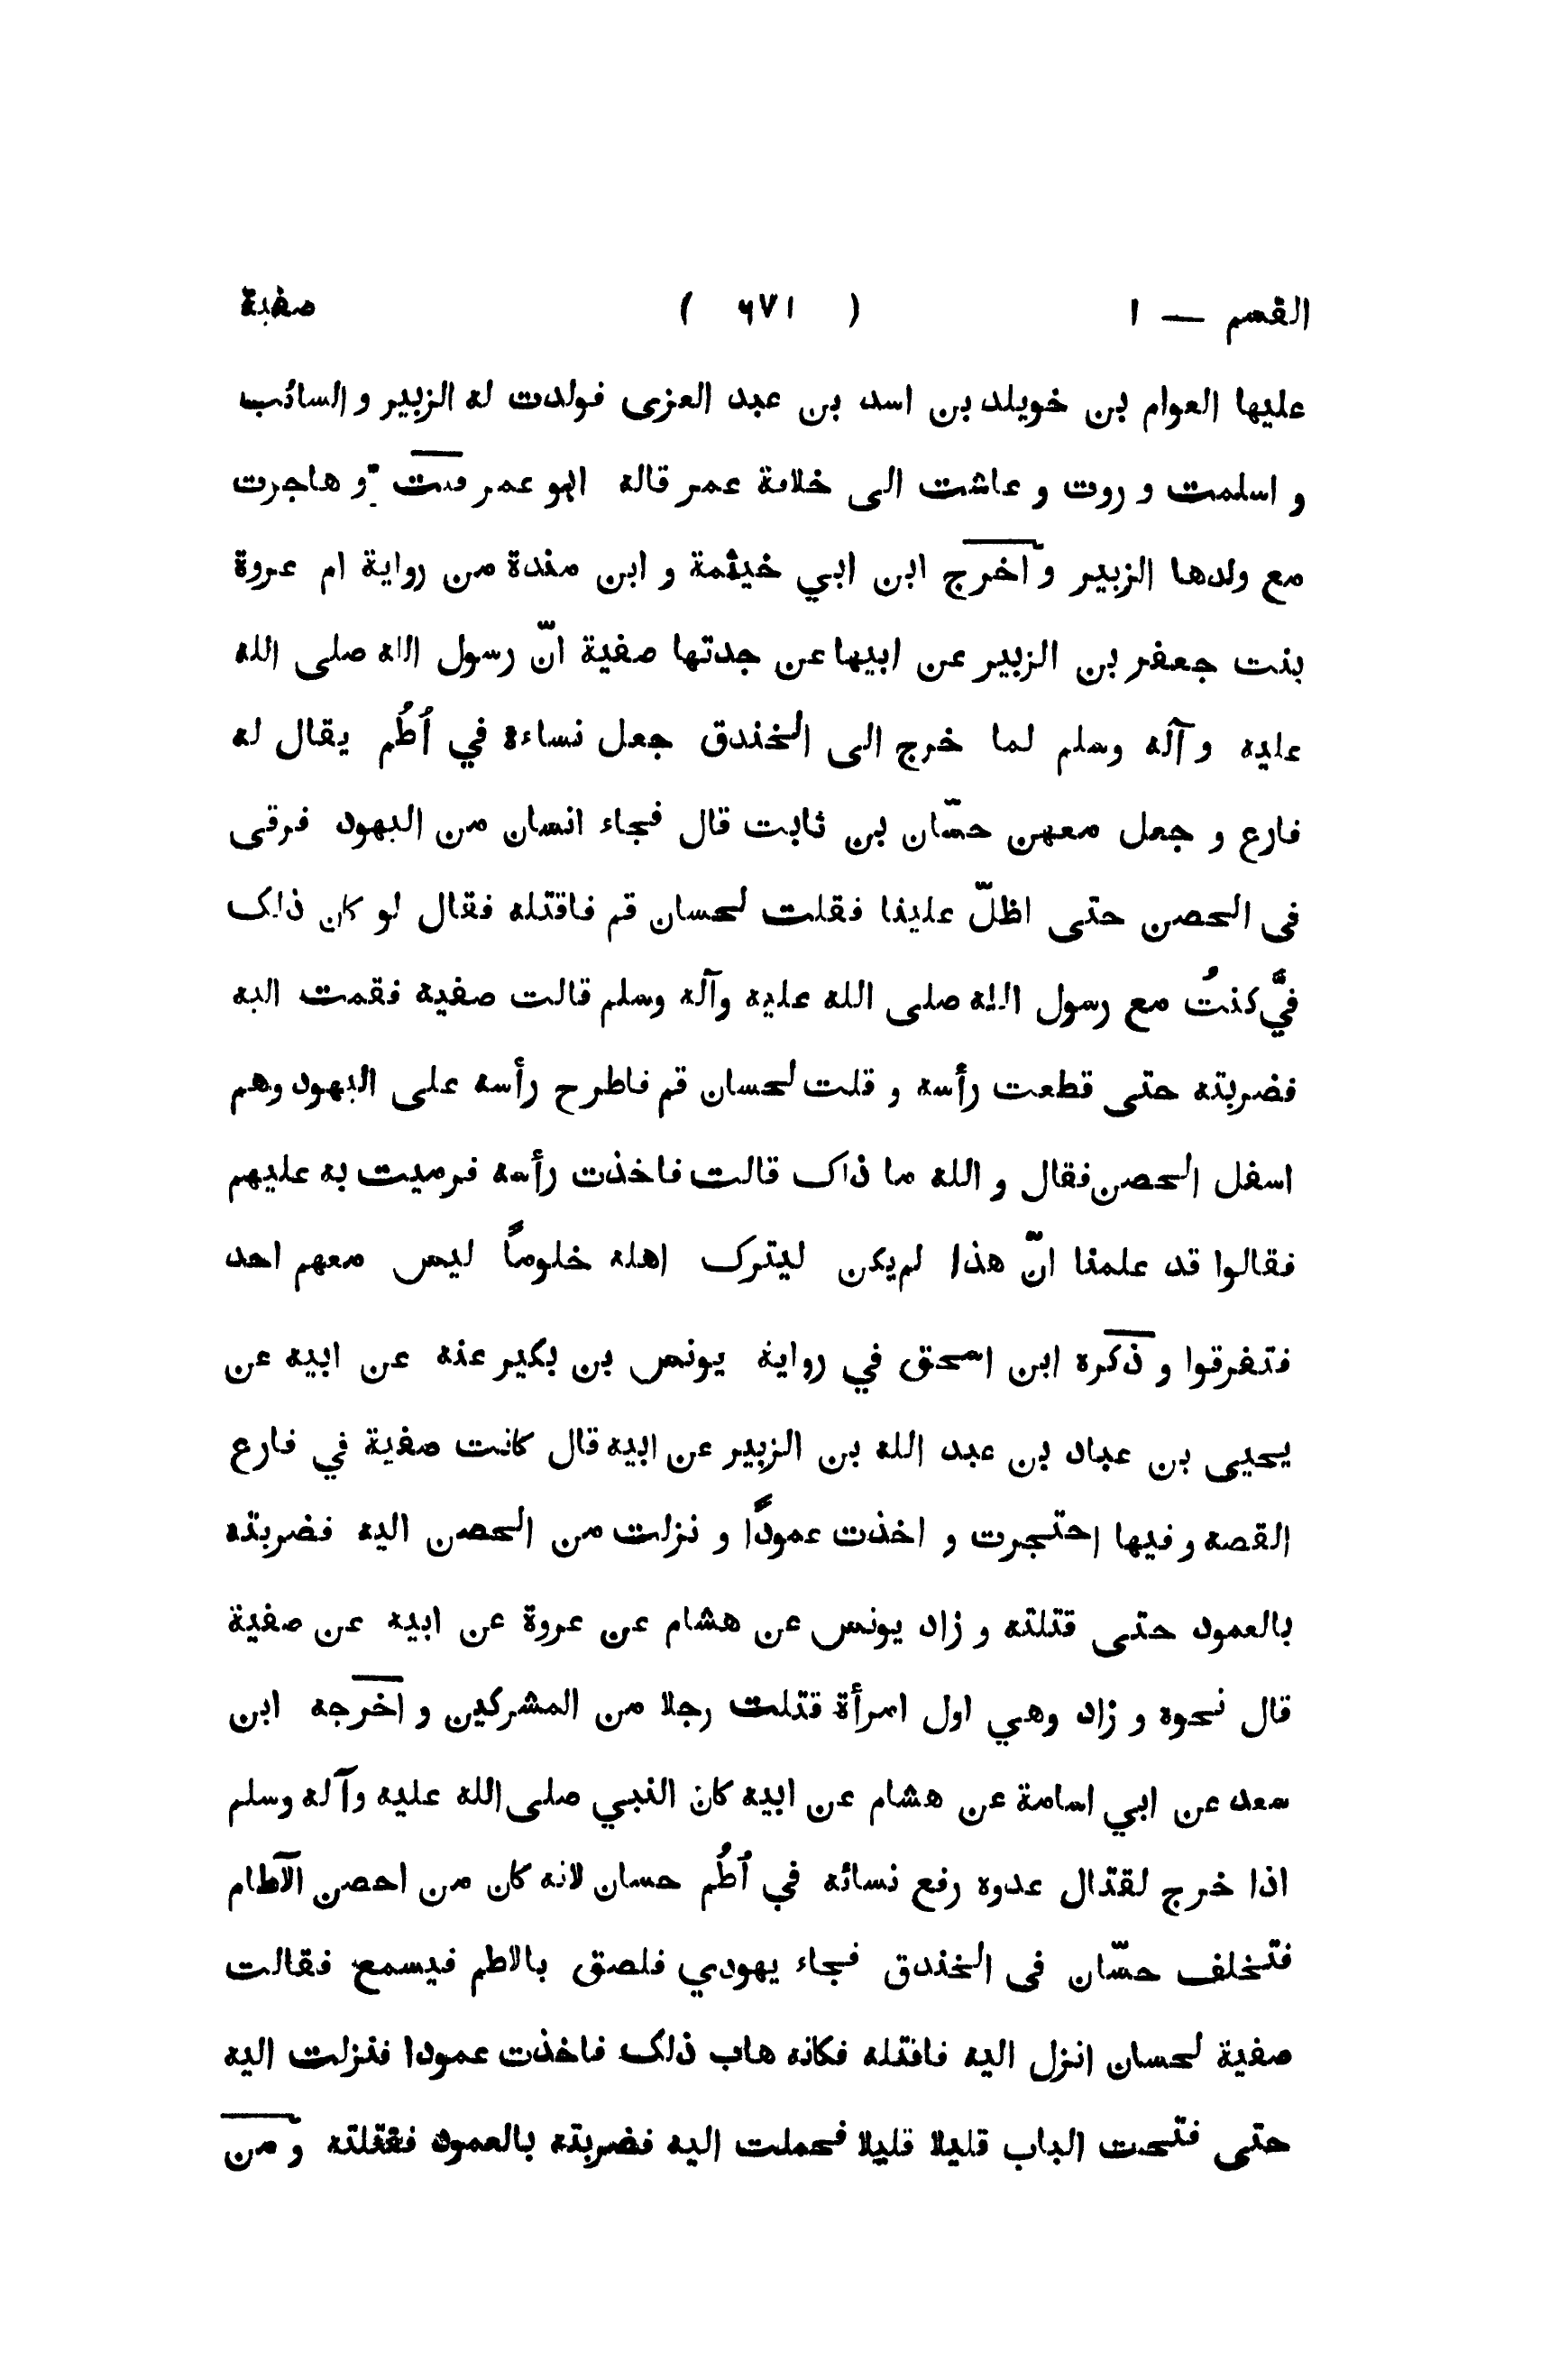 القسم — ١ ( ٦٧١ ) صفية
عليها العوام بن خويلد بن اسد بن عبد العزى فولدت له الزبير و السائب
و اسلمت و روت و عاشت الى خلافة عمر قاله ابو عمر قلت و هاجرت
مع ولدها الزبير و اخرج ابن ابي خيثمة و ابن مندة من رواية ام عروة
بنت جعفر بن الزبير عن ابيها عن جدتها صفية انّ رسول الله صلى الله
عليه و آله وسلم لما خرج الى الخندق جعل نساءه في اُطُم يقال له
فارع و جعل معهن حسّان بن ثابت قال فجاء انسان من اليهود فرقى
فى الحصن حتى اظلّ علينا فقلت لحسان قم فاقتله فقال لو كان ذلک
فيَّ كنتُ مع رسول الله صلى الله عليه وآله وسلم قالت صفية فقمت اليه
فضربته حتى قطعت رأسه و قلت لحسان قم فاطرح رأسه على اليهود وهم
اسفل الحصن فقال و الله ما ذاک قالت فاخذت رأسه فرميت به عليهم
فقالوا قد علمنا انّ هذا لم يكن ليترک اهله خلوفاً ليس معهم احد
فتفرقوا و ذكره ابن اسحق في رواية يونس بن بكير عنه عن ابيه عن
يحيى بن عباد بن عبد الله بن الزبير عن ابيه قال كانت صفية في فارع
القصه و فيها احتجرت و اخذت عموداً و نزلت من الحصن اليه فضربته
بالعمود حتى قتلته و زاد يونس عن هشام عن عروة عن ابيه عن صفية
قال نحوه و زاد وهي اول امرأة قتلت رجلا من المشركين و اخرجه ابن
سعد عن ابي اسامة عن هشام عن ابيه كان النبي صلى الله عليه وآله وسلم
اذا خرج لقتال عدوه رفع نسائه في اُطُم حسان لانه كان من احصن الآطام
فتخلف حسّان فى الخندق فجاء يهودي فلصق بالاطم فيسمع فقالت
صفية لحسان انزل اليه فاقتله فكانه هاب ذلک فاخذت عمودا فنزلت اليه
حتى فتحت الباب قليلا قليلا فحملت اليه فضربته بالعمود فقتلته و من